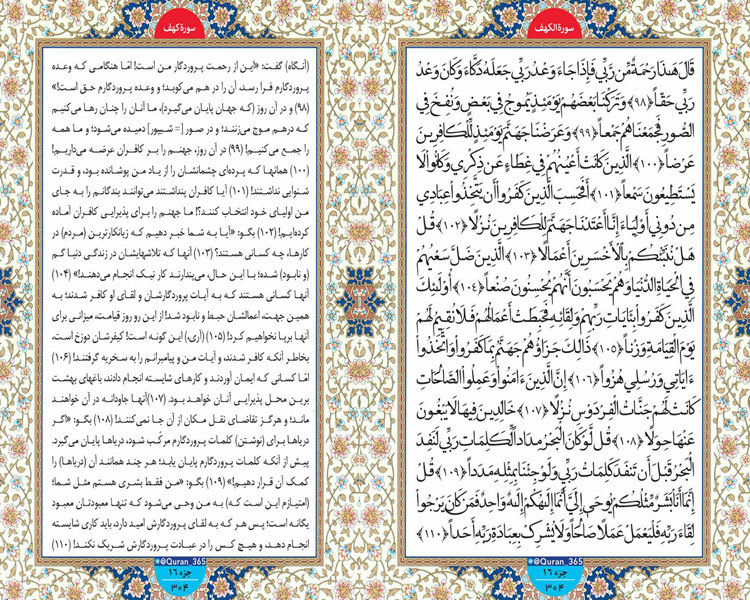 سورة الکهف
قَالَ هَـٰذَا رَحْمَةٌ مِّن رَّبِّي فَإِذَا جَاءَ وَعْدُ رَبِّي جَعَلَهُ دَكَّاءَ وَكَانَ وَعْدُ
رَبِّي حَقّاً ﴿۹۸﴾ وَتَرَكْنَا بَعْضَهُمْ يَوْمَئِذٍ يَمُوجُ فِي بَعْضٍ وَنُفِخَ فِي
الصُّورِ فَجَمَعْنَاهُمْ جَمْعاً ﴿۹۹﴾ وَعَرَضْنَا جَهَنَّمَ يَوْمَئِذٍ لِّلْكَافِرِينَ
عَرْضاً ﴿۱۰۰﴾ الَّذِينَ كَانَتْ أَعْيُنُهُمْ فِي غِطَاءٍ عَن ذِكْرِي وَكَانُوا لَا
يَسْتَطِيعُونَ سَمْعاً ﴿۱۰۱﴾ أَفَحَسِبَ الَّذِينَ كَفَرُوا أَن يَتَّخِذُوا عِبَادِي
مِن دُونِي أَوْلِيَاءَ إِنَّا أَعْتَدْنَا جَهَنَّمَ لِلْكَافِرِينَ نُزُلاً ﴿۱۰۲﴾ قُلْ
هَلْ نُنَبِّئُكُم بِالْأَخْسَرِينَ أَعْمَالاً ﴿۱۰۳﴾ الَّذِينَ ضَلَّ سَعْيُهُمْ
فِي الْحَيَاةِ الدُّنْيَا وَهُمْ يَحْسَبُونَ أَنَّهُمْ يُحْسِنُونَ صُنْعاً ﴿۱۰۴﴾ أُولَـٰئِكَ
الَّذِينَ كَفَرُوا بِآيَاتِ رَبِّهِمْ وَلِقَائِهِ فَحَبِطَتْ أَعْمَالُهُمْ فَلَا نُقِيمُ لَهُمْ
يَوْمَ الْقِيَامَةِ وَزْناً ﴿۱۰۵﴾ ذَٰلِكَ جَزَاؤُهُمْ جَهَنَّمُ بِمَا كَفَرُوا وَاتَّخَذُوا
ءَايَاتِي وَرُسُلِي هُزُواً ﴿۱۰۶﴾ إِنَّ الَّذِينَ ءَامَنُوا وَعَمِلُوا الصَّالِحَاتِ
كَانَتْ لَهُمْ جَنَّاتُ الْفِرْدَوْسِ نُزُلاً ﴿۱۰۷﴾ خَالِدِينَ فِيهَا لَا يَبْغُونَ
عَنْهَا حِوَلاً ﴿۱۰۸﴾ قُل لَّوْ كَانَ الْبَحْرُ مِدَاداً لِّكَلِمَاتِ رَبِّي لَنَفِدَ
الْبَحْرُ قَبْلَ أَن تَنفَدَ كَلِمَاتُ رَبِّي وَلَوْ جِئْنَا بِمِثْلِهِ مَدَداً ﴿۱۰۹﴾ قُلْ
إِنَّمَا أَنَا بَشَرٌ مِّثْلُكُمْ يُوحَىٰ إِلَيَّ أَنَّمَا إِلَـٰهُكُمْ إِلَـٰهٌ وَاحِدٌ فَمَن كَانَ يَرْجُوا
لِقَاءَ رَبِّهِ فَلْيَعْمَلْ عَمَلاً صَالِحاً وَلَا يُشْرِكْ بِعِبَادَةِ رَبِّهِ أَحَداً ﴿۱۱۰﴾
@Quran_365
جزء ۱۶
۳۰۴
سورهٔ کهف
(آنگاه) گفت: «این از رحمت پروردگار من است! امّا هنگامی که وعده
پروردگارم فرا رسد، آن را در هم می‌کوبد؛ و وعده پروردگارم حق است!»
(۹۸) و در آن روز (که جهان پایان می‌گیرد)، ما آنان را چنان رها می‌کنیم
که درهم موج می‌زنند؛ و در صور [= شیپور] دمیده می‌شود؛ و ما همه
را جمع می‌کنیم! (۹۹) در آن روز، جهنم را بر کافران عرضه می‌داریم!
(۱۰۰) همانها که پرده‌ای چشمانشان را از یاد من پوشانده بود، و قدرت
شنوایی نداشتند! (۱۰۱) آیا کافران پنداشتند می‌توانند بندگانم را به جای
من اولیای خود انتخاب کنند؟! ما جهنم را برای پذیرایی کافران آماده
کرده‌ایم! (۱۰۲) بگو: «آیا به شما خبر دهیم که زیانکارترین (مردم) در
کارها، چه کسانی هستند؟ (۱۰۳) آنها که تلاشهایشان در زندگی دنیا گم
(و نابود) شده؛ با این حال، می‌پندارند کار نیک انجام می‌دهند!» (۱۰۴)
آنها کسانی هستند که به آیات پروردگارشان و لقای او کافر شدند؛ به
همین جهت، اعمالشان حبط و نابود شد! از این رو روز قیامت، میزانی برای
آنها برپا نخواهیم کرد! (۱۰۵) (آری،) این گونه است! کیفرشان دوزخ است،
بخاطر آنکه کافر شدند، و آیات من و پیامبرانم را به سخریه گرفتند! (۱۰۶)
امّا کسانی که ایمان آوردند و کارهای شایسته انجام دادند، باغهای بهشت
برین محل پذیرایی آنان خواهد بود. (۱۰۷)آنها جاودانه در آن خواهند
ماند؛ و هرگز تقاضای نقل مکان از آن جا نمی‌کنند! (۱۰۸) بگو: «اگر
دریاها برای (نوشتن) کلمات پروردگارم مرکّب شود، دریاها پایان می‌گیرد.
پیش از آنکه کلمات پروردگارم پایان یابد؛ هر چند همانند آن (دریاها) را
کمک آن قرار دهیم!» (۱۰۹) بگو: «من فقط بشری هستم مثل شما؛
(امتیازم این است که) به من وحی می‌شود که تنها معبودتان معبود
یگانه است؛ پس هر که به لقای پروردگارش امید دارد، باید کاری شایسته
انجام دهد، و هیچ کس را در عبادت پروردگارش شریک نکند! (۱۱۰)
@Quran_365
جزء ۱۶
۳۰۴